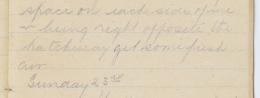 space on each side of me
& being right opposite the
hatchway get some fresh
air.
Sunday 23rd